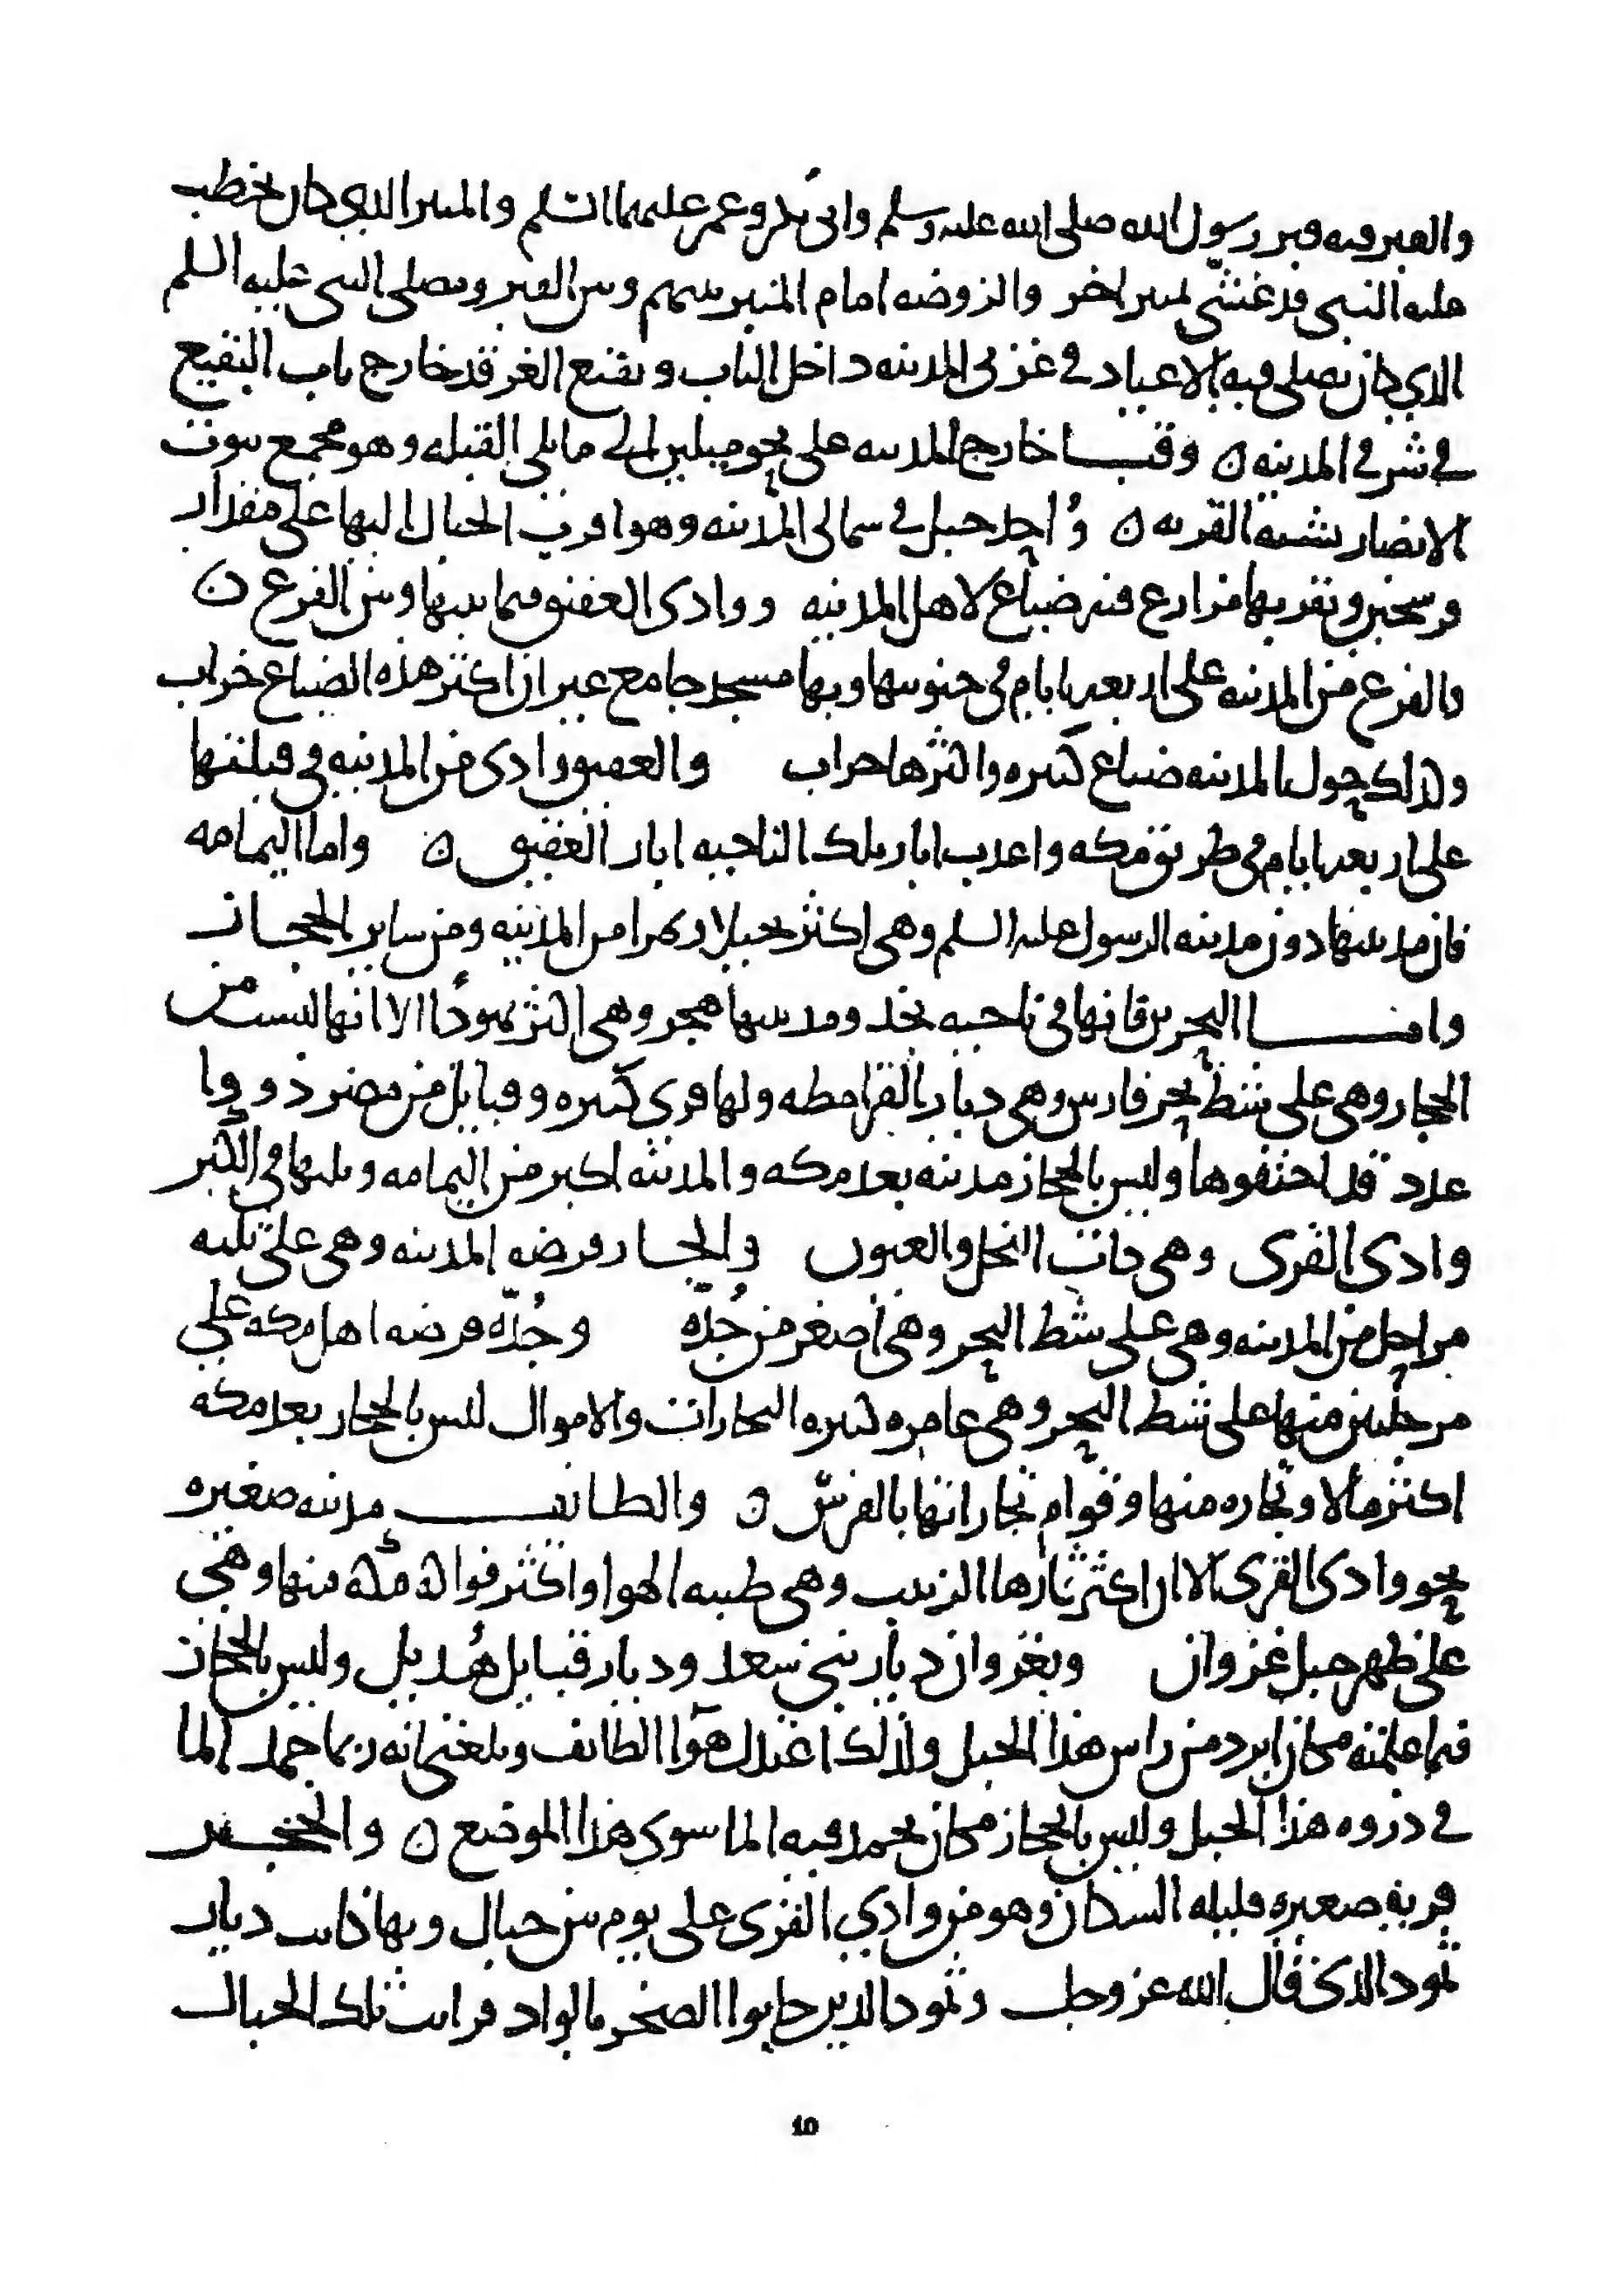 والقبر فيه قبر رسول الله صلى الله عليه وسلم وابى بكر وعمر عليهما السلم والمنبر الذي كان يخطب
عليه النبى قد غشّي بمنبر اخر والروضه امام المنبر بينهم وبين القبر ومصلى النبى عليه السلم
الذي كان يصلى فيه الاعياد في غربى المدينه داخل الباب وبقيع الغرقد خارج باب البقيع
في شرقى المدينه ن وقبا خارج المدينه على نحو ميلين الى ما يلى القبله وهو مجمع بيوت
الانصار يشبه القريه ن وأحد جبل في شمالى المدينه وهو اقرب الجبال اليها على مقدار
فرسخين وبقربها مزارع فيه ضياع لاهل المدينه ووادى العقيق فيما بينها وبين الفرع ن
والفرع من المدينه على اربعه ايام في جنوبيها وبها مسجد جامع غير ان اكثر هذه الضياع خراب
وكذلك حول المدينه ضياع كثيره واكثرها خراب والعقيق وادى من المدينه في قبلتها
على اربعه ايام في طريق مكه واعذب ابار بتلك الناحيه ابار العقيق ن واما اليمامه
فان مدينتها دون مدينه الرسول عليه السلم وهى اكثر نخيلا وتمرا من المدينه ومن ساير الحجاز
وامـــا البحرين فانها في ناحيه نجد ومدينتها هجر وهى اكثر تمورًا الا انها ليست من
الحجاز وهى على شط بحر فارس وهى ديار القرامطه ولها قرى كثيره وقبايل من مضر ذووا
عدد قد احتفوها وليس بالحجاز مدينه بعد مكه والمدينه اكبر من اليمامه ويليها في الكبر
وادى القرى وهى ذات النخل والعيون والجار فرضه المدينه وهى على ثلثه
مراحل من المدينه وهى على شط البحر وهى اصغر من جُدّه وجُدّه فرضه اهل مكه على
مرحلتين منها على شط البحر وهى عامره كثيره التجارات والاموال ليس بالحجاز بعد مكه
اكثر مالا وتجاره منها وقوام تجاراتها بالفرس ن والطايف مدينه صغيره
نحو وادى القرى الا ان اكثر ثمارها الزبيب وهى طيبه الهوا واكثر فواكه مكه منها وهي
على ظهر جبل غزوان وبغزوان ديار بنى سعد وديار قبايل هُذيل وليس بالحجاز
فيما علمته مكان ابرد من راس هذا الجبل ولذلك اعتدل هوآ الطائف وبلغنى انه ربما جمد الما
في ذروه هذا الجبل وليس بالحجاز مكان يجمد فيه الما سوى هذا الموضع ن والحجر
قريه صغيره قليله السكان وهو من وادي القرى على يوم بين جبال وبها كانت ديار
ثمود الذى قال الله عز وجل وثمود الذين جابوا الصخر بالواد فرايت تلك الجبال
10